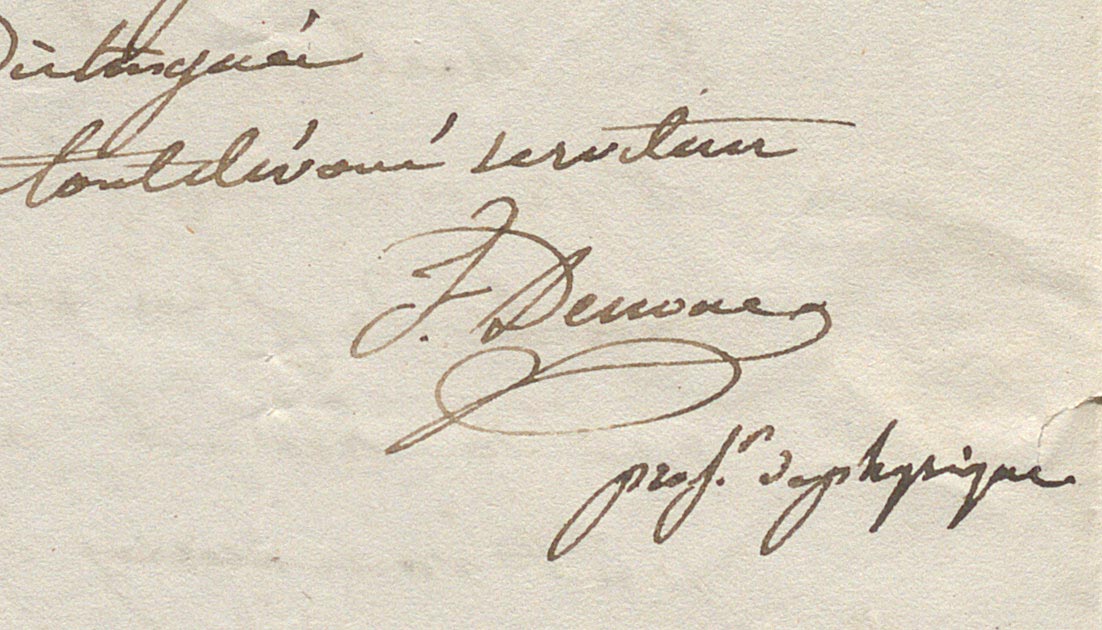 Distingués
tout dévoué serviteur
prof.r de physique